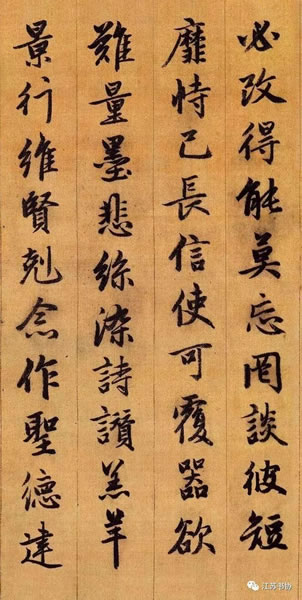 必改得能莫忘罔談彼短
靡恃己長信使可覆器欲
難量墨悲絲染詩讚羔羊
景行維賢剋念作聖德建
江苏书协